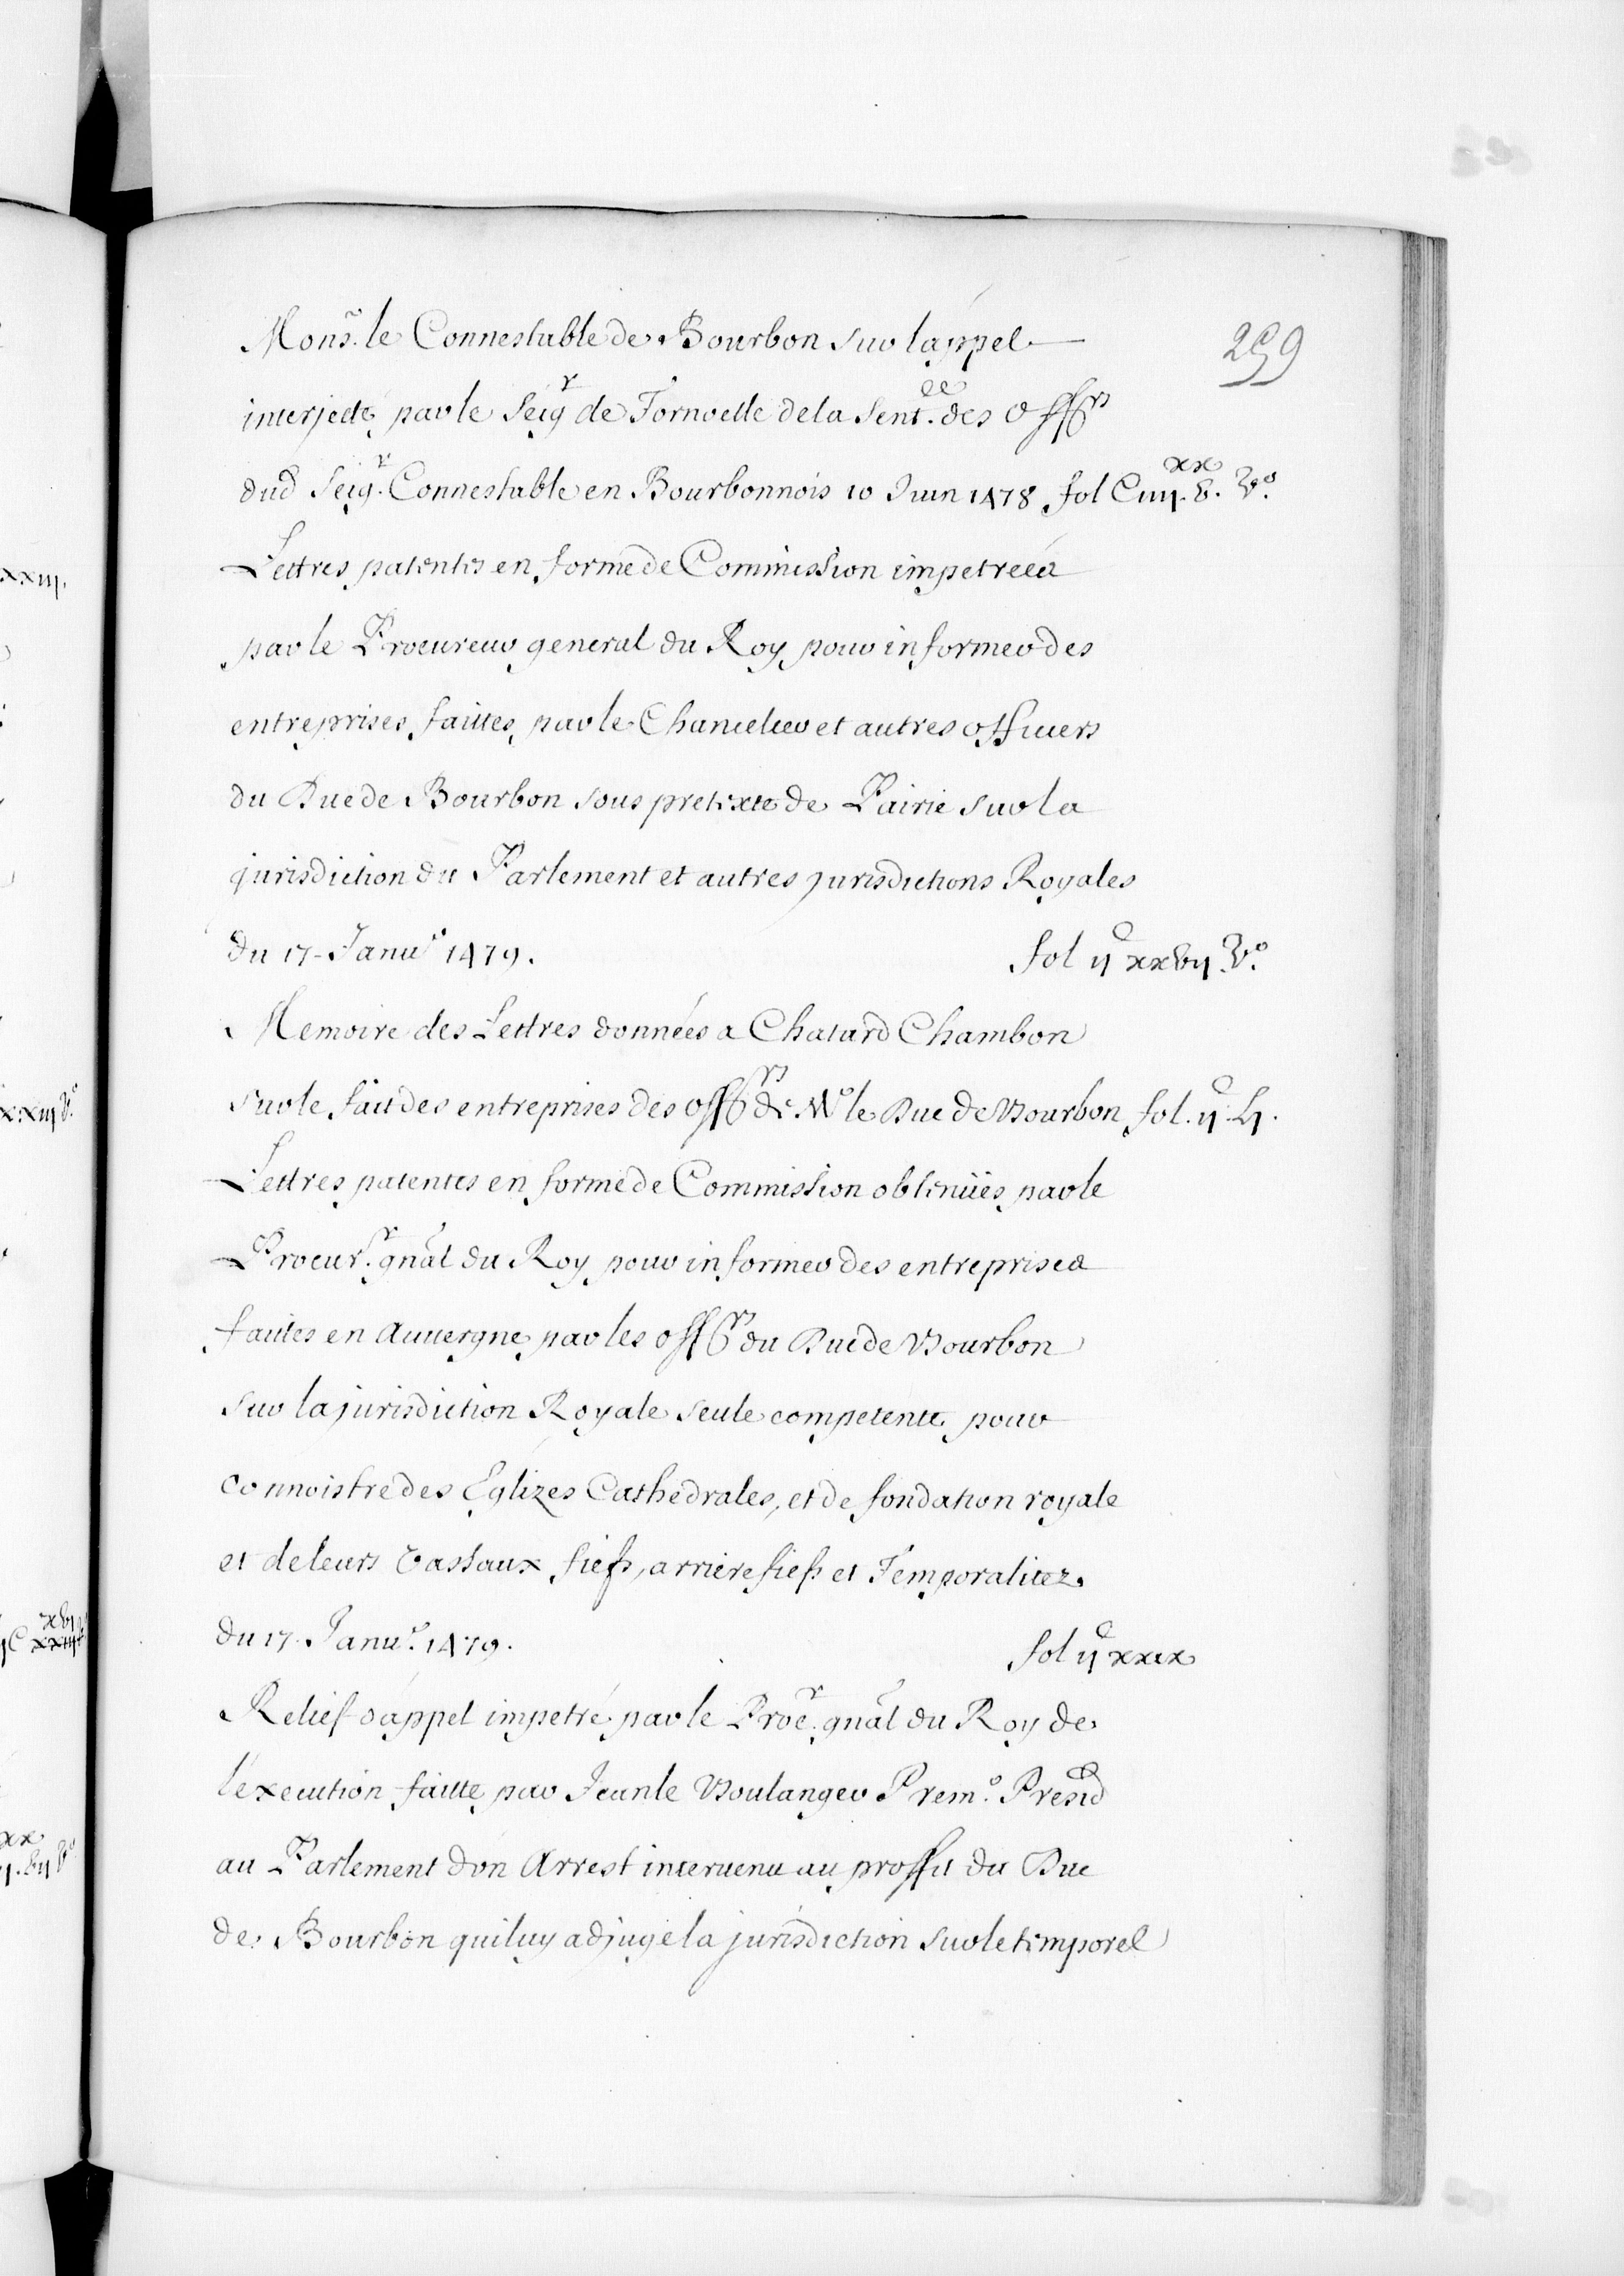 259
Mons.r le Connestable de Bourbon sur l'appel
interjetté par le Seig.r de Tornoelle de la Sent.ce des Off.rs
dud Seig.r Connestable en Bourbonnois 10 Juin 1478 fol C iiij.xx V. V.o
Lettres patentes en forme de Commission impetrées
par le Procureur general du Roy pour informer des
entreprises faittes par le Chancelier et autres officiers
du Duc de Bourbon sous pretexte de Pairie sur la
jurisdiction du Parlement et autres jurisdictions Royales
du 17 Janu.r 1479. fol ij.C xxvij. V.o
Memoire des Lettres données a Chatard Chambon
sur le fait des entreprises des off.rs de M.r le Duc de Bourbon fol. ij.C Lj.
Lettres patentes en forme de Commission obtenües par le
Procur.r gnal du Roy pour informer des entreprises
faites en Auvergne par les off.rs du Duc de Bourbon
sur la jurisdiction Royale seule competente pour
connoistre des Eglizes Cathedrales, et de fondation royale
et de leurs Vassaux fiefs, arrierefiefs et Temporalitez
du 17 Janu.r 1479. fol ij.C xxix
Relief d'appel impetré par le Proc.r gnal du Roy de
l'execution faitte par Jean le Boulanger Prem.r Presid
au Parlement d'un Arrest intervenu au proffit du Duc
de Bourbon qui luy adjuge la jurisdiction sur le temporel
xxiij.
xxiij V.o